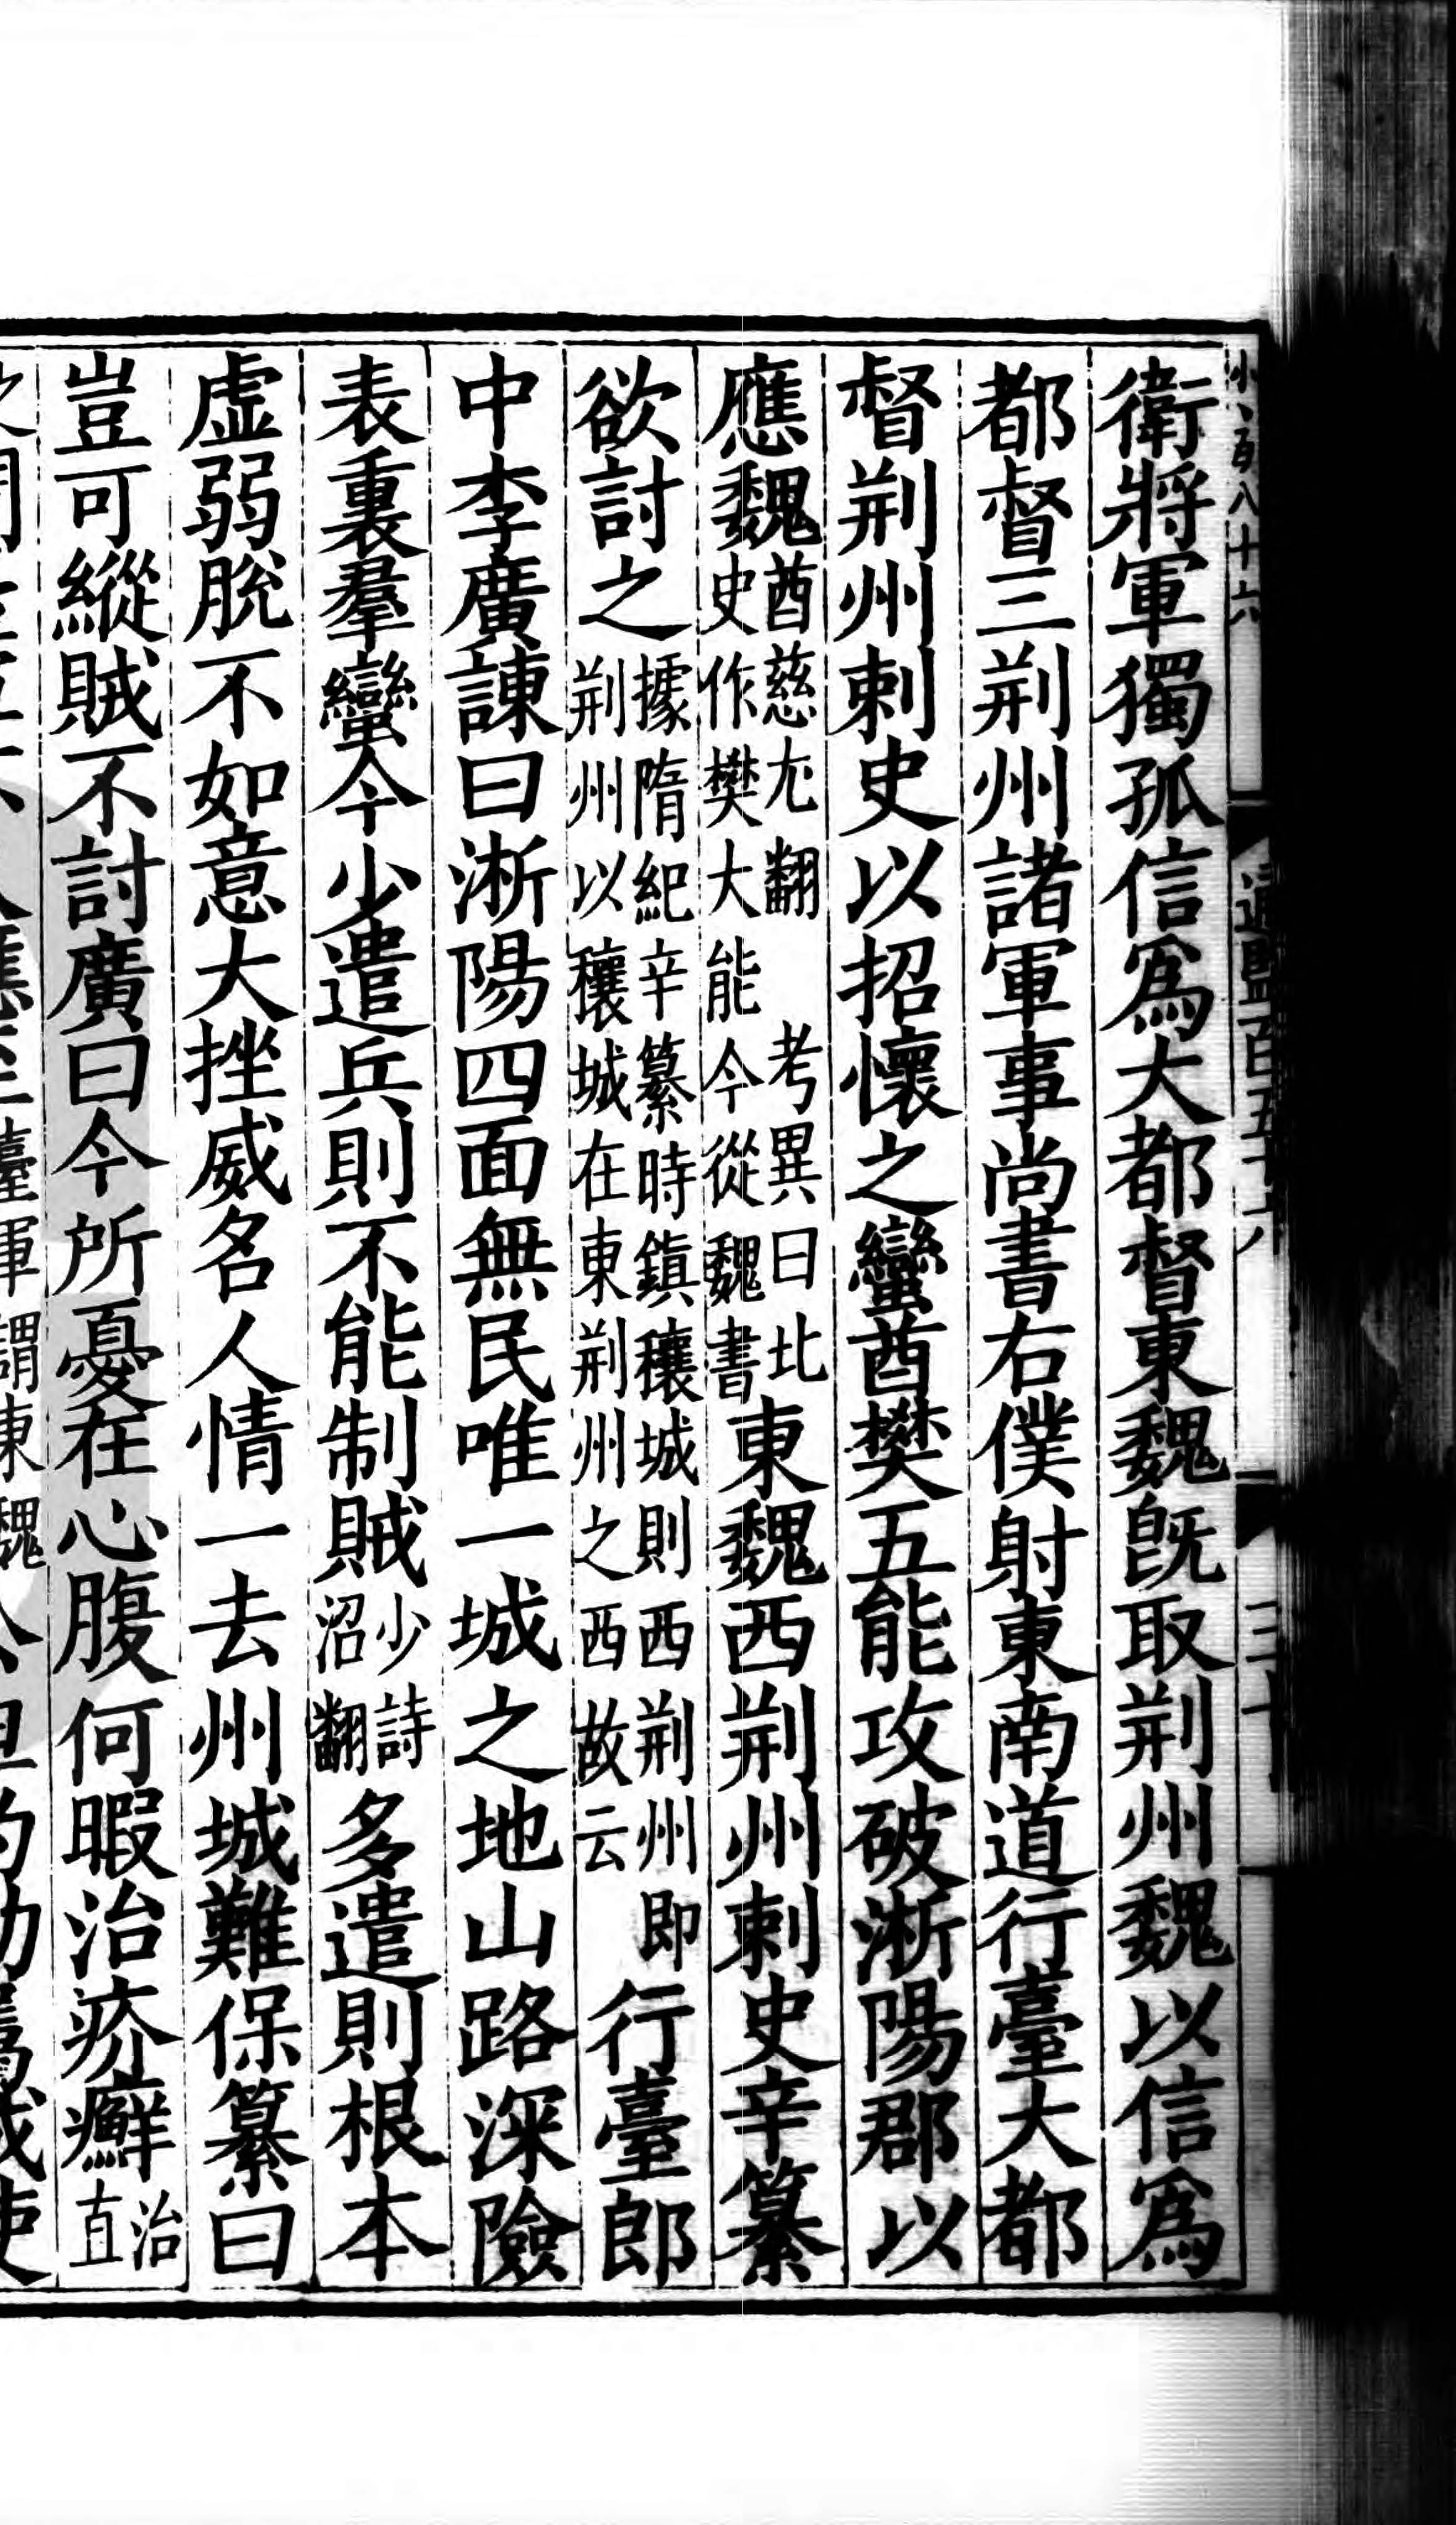 小二百八十六
通鑑一百五十六
三十
衛將軍獨孤信爲大都督東魏旣取荆州魏以信爲
都督三荆州諸軍事尚書右僕射東南道行臺大都
督荆州刺史以招懷之蠻酋樊五能攻破淅陽郡以
應魏酋慈尤翻考異曰北史作樊大能今從魏書東魏西荆州刺史辛纂
欲討之據隋紀辛纂時鎮穰城則西荆州即荆州以穰城在東荆州之西故云行臺郎
中李廣諫曰淅陽四面無民唯一城之地山路深險
表裏羣蠻今少遣兵則不能制賊少詩沼翻多遣則根本
虚弱脫不如意大挫威名人情一去州城難保纂曰
豈可縱賊不討廣曰今所憂在心腹何暇治疥癬治直